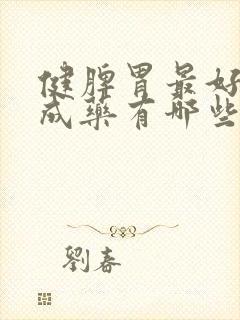 健脾胃最好
成藥有哪些
劉春